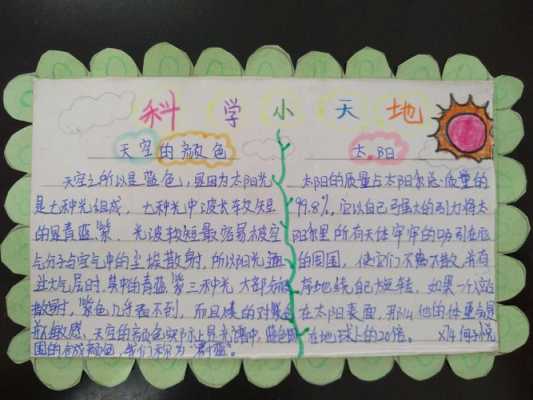 科学小天地
天空的颜色
天空之所以是蓝色，是因为太阳光
是七种光组成，七种光中波长较短
的是青蓝紫，光波较短最容易被空
气分子与空气中的尘埃散射，所以阳光通
过大气层时，其中的青蓝紫三种光大部分被
散射，紫色几乎看不到，而且人的对紫色
敏感，天空的颜色实际上是光谱中，蓝色
围的合成颜色，我们称为“蔚蓝”。
太阳
太阳的质量占太阳系总质量的
99.8%，它以自己强大的引力将太
阳系里所有天体牢牢的吸引在它
的周围，使它们不离不散，井有
地绕自己旋转，如果一个人站
在太阳表面，那么他的体重会是
在地球上的20倍。